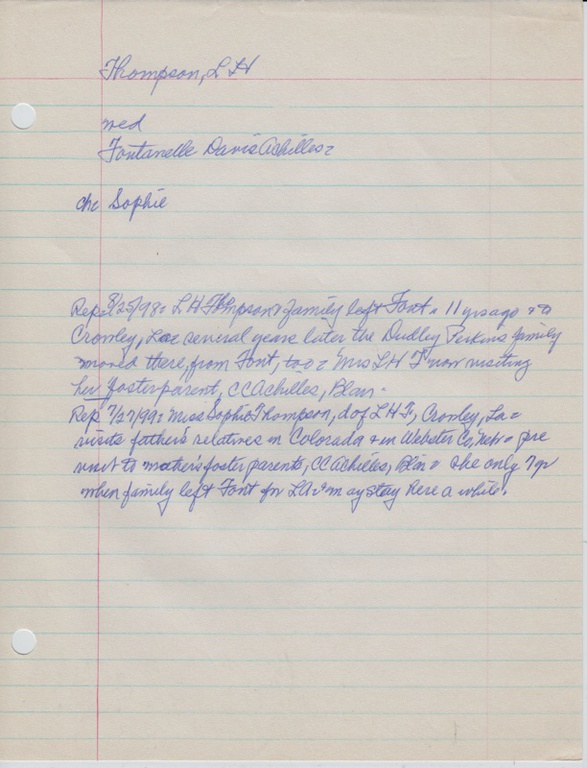 Thompson, L H
med
Fontanelle Davis Achilles =
ch: Sophie
Rep: 8/25/98: L H Thompson & family left Font = 11 yrs ago & to
Crowley, La = several years later the Dudley Perkins family
moved there, from Font, too = "Mrs L H T" now visiting
her foster parent, C C Achilles, Blair =
Rep 7/27/99: Miss Sophie Thompson, d of L H T, Crowley, La =
visits father's relatives in Colorada & in Webster Co, Nebr =
visit to mother's foster parents, C C Achilles, Blair = she only 7 yr
when family left Font for LA & may stay here a while.